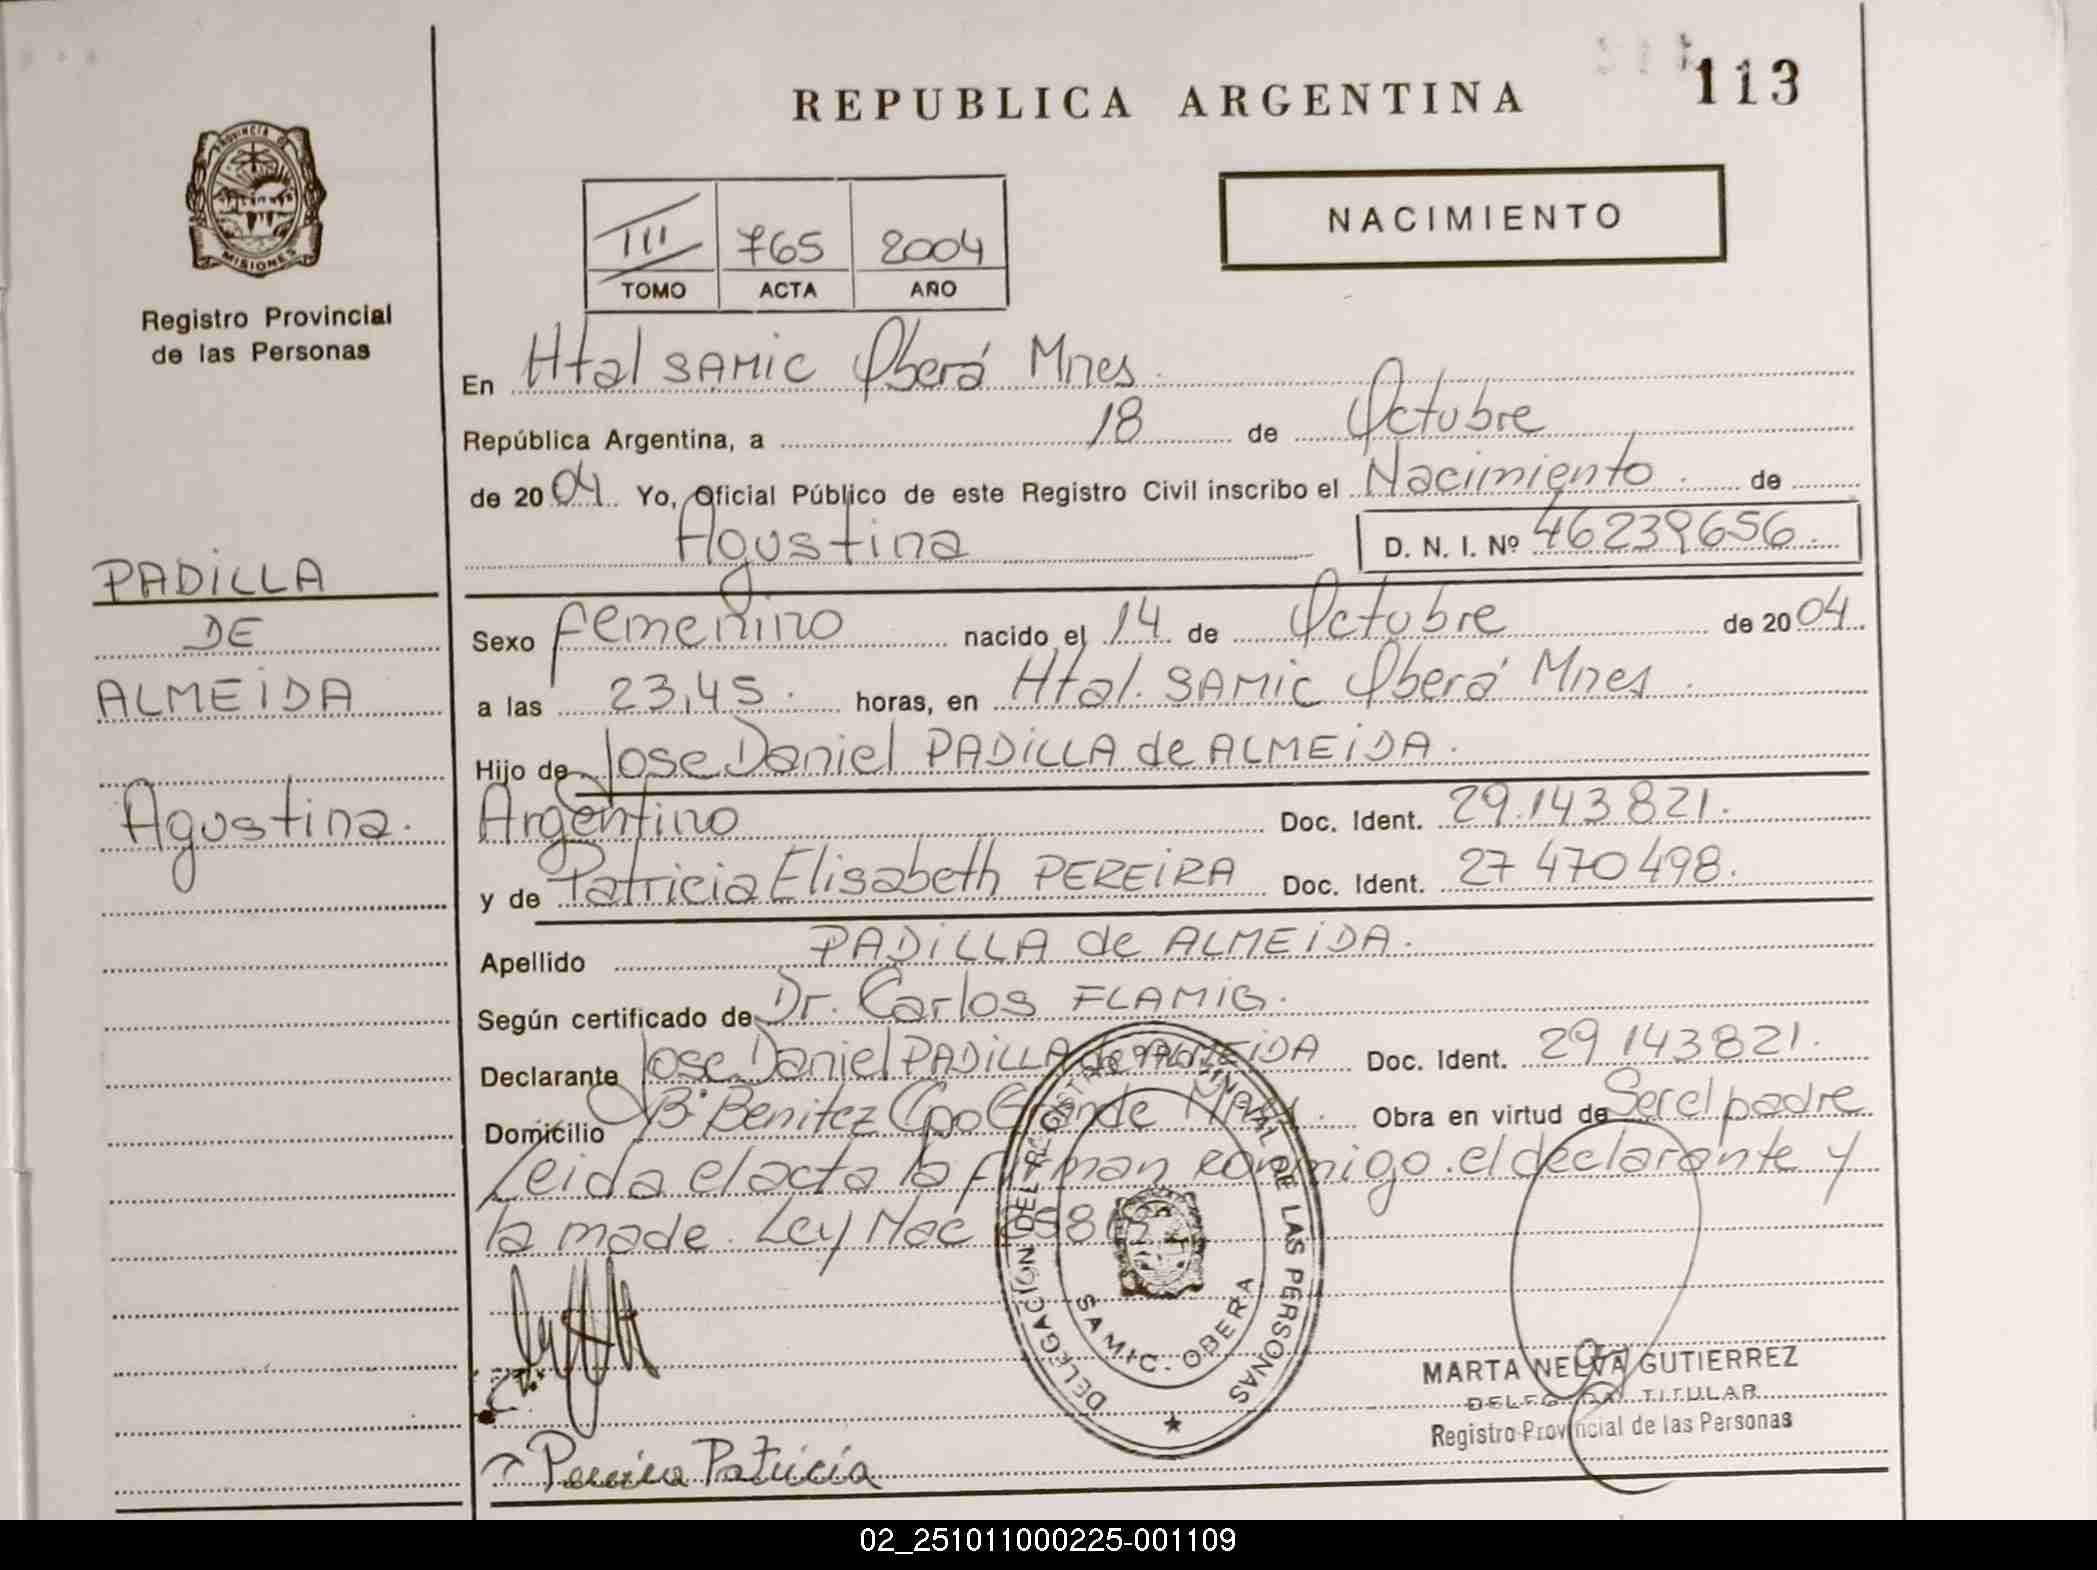 113
REPUBLICA ARGENTINA
PROVINCIA DE
MISIONES
NACIMIENTO
III 765 2004
TOMO ACTA AÑO
Registro Provincial
de las Personas
En Htal SAMIC Oberá Mnes.
República Argentina, a 18 de Octubre
de 2004 Yo, Oficial Público de este Registro Civil inscribo el Nacimiento de
Agustina D. N. I. Nº 46239656.
PADiLLA
DE
ALMEiDA
Agustina.
Sexo femenino nacido el 14 de Octubre de 2004
a las 23,45. horas, en Htal. SAMiC Oberá Mnes.
Hijo de Jose Daniel PADiLLA de ALMEiDA.
Argentino Doc. Ident. 29.143821.
y de Patricia Elisabeth PEREiRA Doc. Ident. 27 470498.
Apellido PADiLLA de ALMEiDA.
Según certificado de Dr. Carlos FLAMIG.
Declarante Jose Daniel PADiLLA de ALMEiDA Doc. Ident. 29 143821.
Domicilio Bº Benitez Cpo Grande Obra en virtud de Ser el padre
Leida el acta la firman conmigo. el declarante y
la made. Ley Nac
DELEGACIÓN DEL REGISTRO PROVINCIAL DE LAS PERSONAS
SAMIC - OBERA
MARTA NELVA GUTIERREZ
DELEGADA TITULAR
Registro Provincial de las Personas
Pereira Patricia
02_251011000225-001109